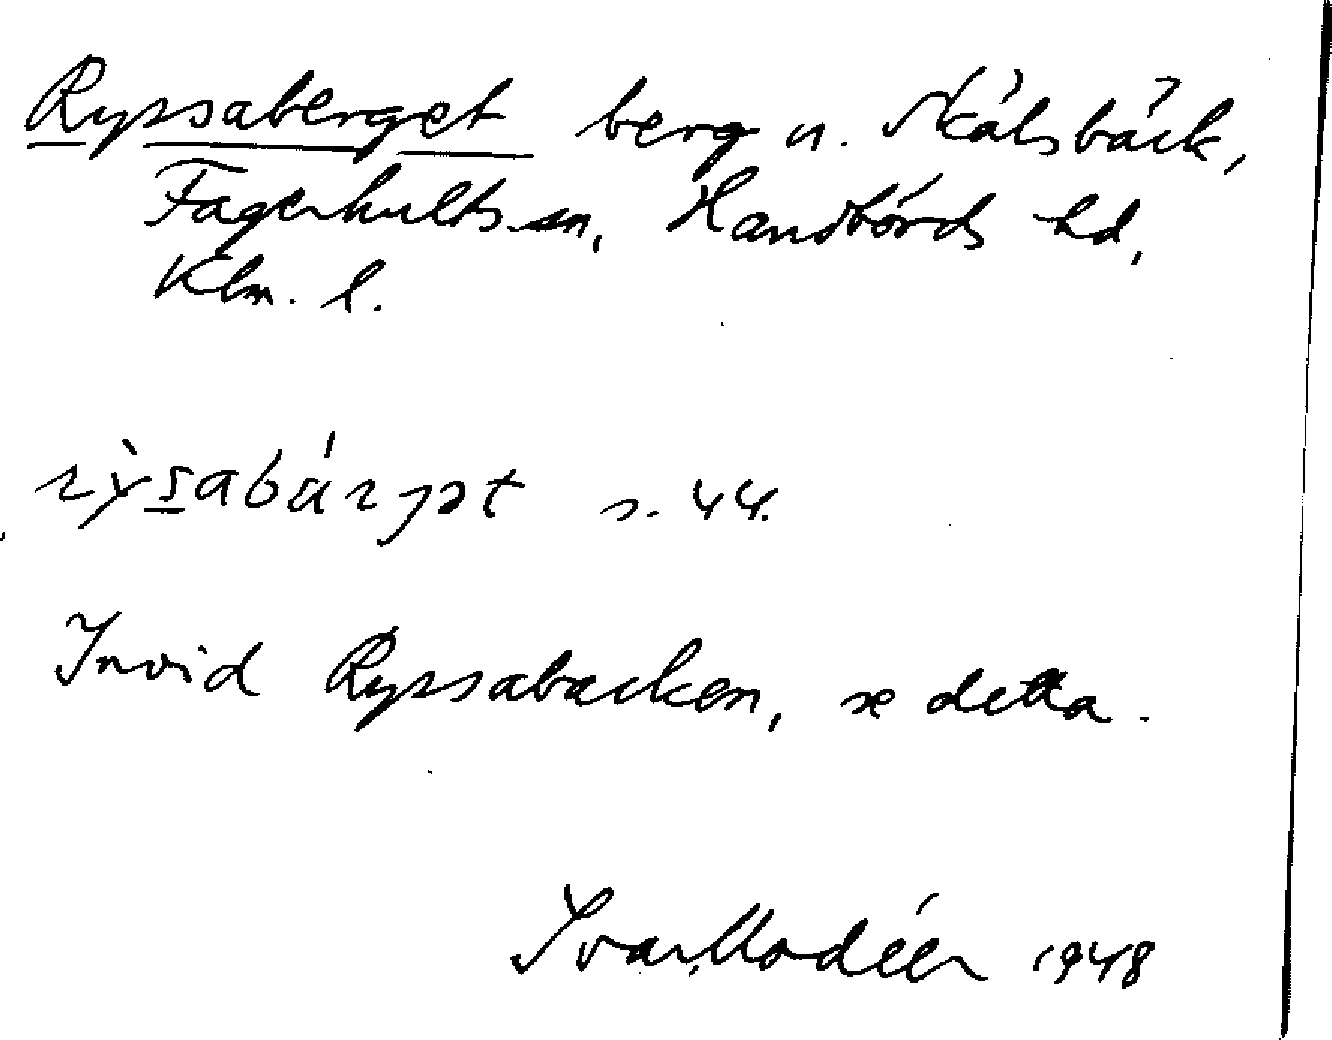 Ryssaberget berg u. Skålsbäck,
Fagerhults sn, Handbörds hd,
Klm. l.
s. 44.
Invid Ryssabacken, se detta.
Ivar Modéer 1948